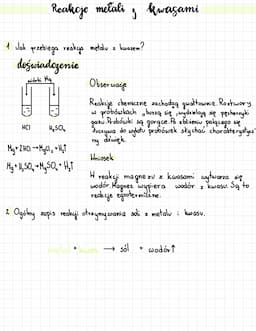 Reakcje metali z kwasami
1 Jak przebiega reakcja metalu z kwasem?
doświadczenie
wiórki Mg
Obserwacje
Reakcje chemiczne zachodzą gwałtownie. Roztwory
w probówkach „burzą się”, wydzielają się pęcherzyki
gazu. Probówki są gorące. Po zbliżeniu palącego się
łuczywa do wylotu probówek słychać charakterystycz
ny dźwięk.
HCl H₂SO₄
Mg + 2HCl → MgCl₂ + H₂↑
Mg + H₂SO₄ → MgSO₄ + H₂↑
Wniosek
W reakcji magnezu z kwasami wytwarza się
wodór. Magnez wypiera wodór z kwasu. Są to
reakcje egzotermiczne.
2. Ogólny zapis reakcji otrzymywania soli z metalu i kwasu.
metal + kwas → sól + wodór↑